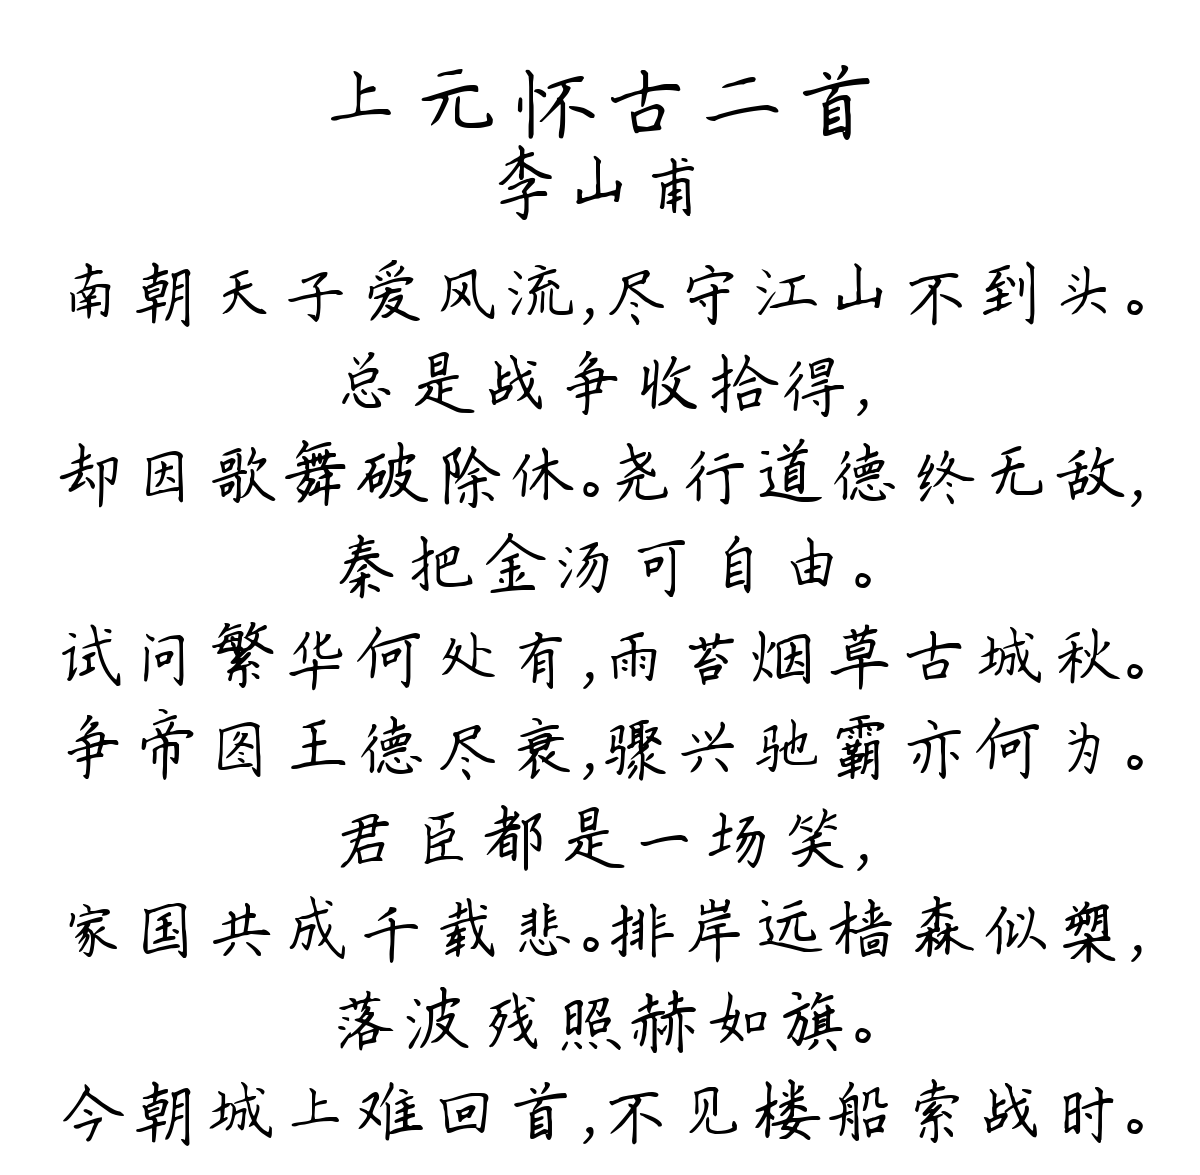 上元怀古二首
李山甫
南朝天子爱风流,尽守江山不到头。
总是战争收拾得,
却因歌舞破除休。尧行道德终无敌,
秦把金汤可自由。
试问繁华何处有,雨苔烟草古城秋。
争帝图王德尽衰,骤兴驰霸亦何为。
君臣都是一场笑,
家国共成千载悲。排岸远樯森似槊,
落波残照赫如旗。
今朝城上难回首,不见楼船索战时。